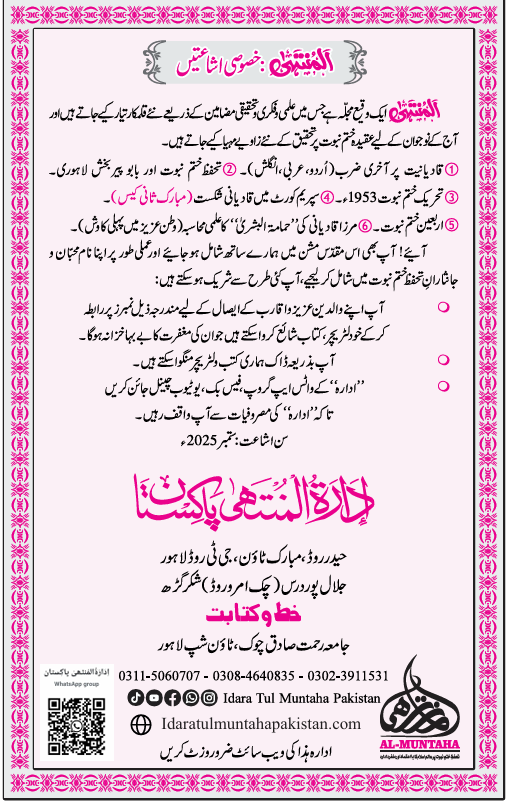 المنتہیٰ: خصوصی اشاعتیں
المنتہیٰ ایک وقیع مجلّہ ہے جس میں علمی و فکری و تحقیقی مضامین کے ذریعے نئے قلمکار تیار کیے جاتے ہیں اور
آج کے نوجوان کے لیے عقیدہ ختم نبوت پر تحقیق کے نئے زاویے مہیا کیے جاتے ہیں۔
① قادیانیت پر آخری ضرب (اُردو، عربی، انگلش)۔ ② تحفظ ختم نبوت اور بابو پیر بخش لاہوری۔
③ تحریک ختم نبوت 1953ء۔ ④ سپریم کورٹ میں قادیانی شکست (مبارک ثانی کیس)۔
⑤ اربعین ختم نبوت۔ ⑥ مرزا قادیانی کی ”حمامۃ البشریٰ“ کا علمی محاسبہ (وطن عزیز میں پہلی کاوش)۔
آیئے! آپ بھی اس مقدس مشن میں ہمارے ساتھ شامل ہو جایئے اور عملی طور پر اپنا نام محبّان و
جانثارانِ تحفظ ختم نبوت میں شامل کر لیجیے، آپ کئی طرح سے شریک ہو سکتے ہیں:
آپ اپنے والدین عزیز و اقارب کے ایصال کے لیے مندرجہ ذیل نمبرز پر رابطہ
کر کے خود لٹریچر، کتاب شائع کروا سکتے ہیں جو ان کی مغفرت کا بے بہا خزانہ ہوگا۔
آپ بذریعہ ڈاک ہماری کتب و لٹریچر منگوا سکتے ہیں۔
”ادارہ“ کے واٹس ایپ گروپ، فیس بک، یوٹیوب چینل جائن کریں
تاکہ ”ادارہ“ کی مصروفیات سے آپ واقف رہیں۔
سن اشاعت: ستمبر 2025ء
اِدارۃُ المُنتَہیٰ پاکستان
حیدر روڈ، مبارک ٹاؤن، جی ٹی روڈ لاہور
جلال پور درس (چک امرو روڈ) شکر گڑھ
خط و کتابت
جامعہ رحمت صادق چوک، ٹاؤن شپ لاہور
0311-5060707 - 0308-4640835 - 0302-3911531
Idara Tul Muntaha Pakistan
Idaratulmuntahapakistan.com
ادارہ ہذا کی ویب سائٹ ضرور وزٹ کریں
ادارۃ المنتھی پاکستان
WhatsApp group
AL-MUNTAHA